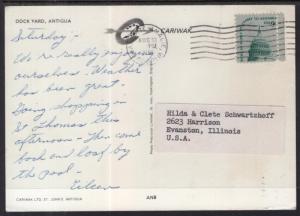 DOCK YARD, ANTIGUA
CARIWAK
Saturday -
We're really enjoying
ourselves. Weather
has been great.
Going shopping in
St Thomas this
afternoon - Then come
back and loaf by
the pool -
Eileen
Hilda & Clete Schwartzhoff
2623 Harrison
Evanston, Illinois
U.S.A.
CARIWAK LTD. ST. JOHN'S, ANTIGUA
AN8